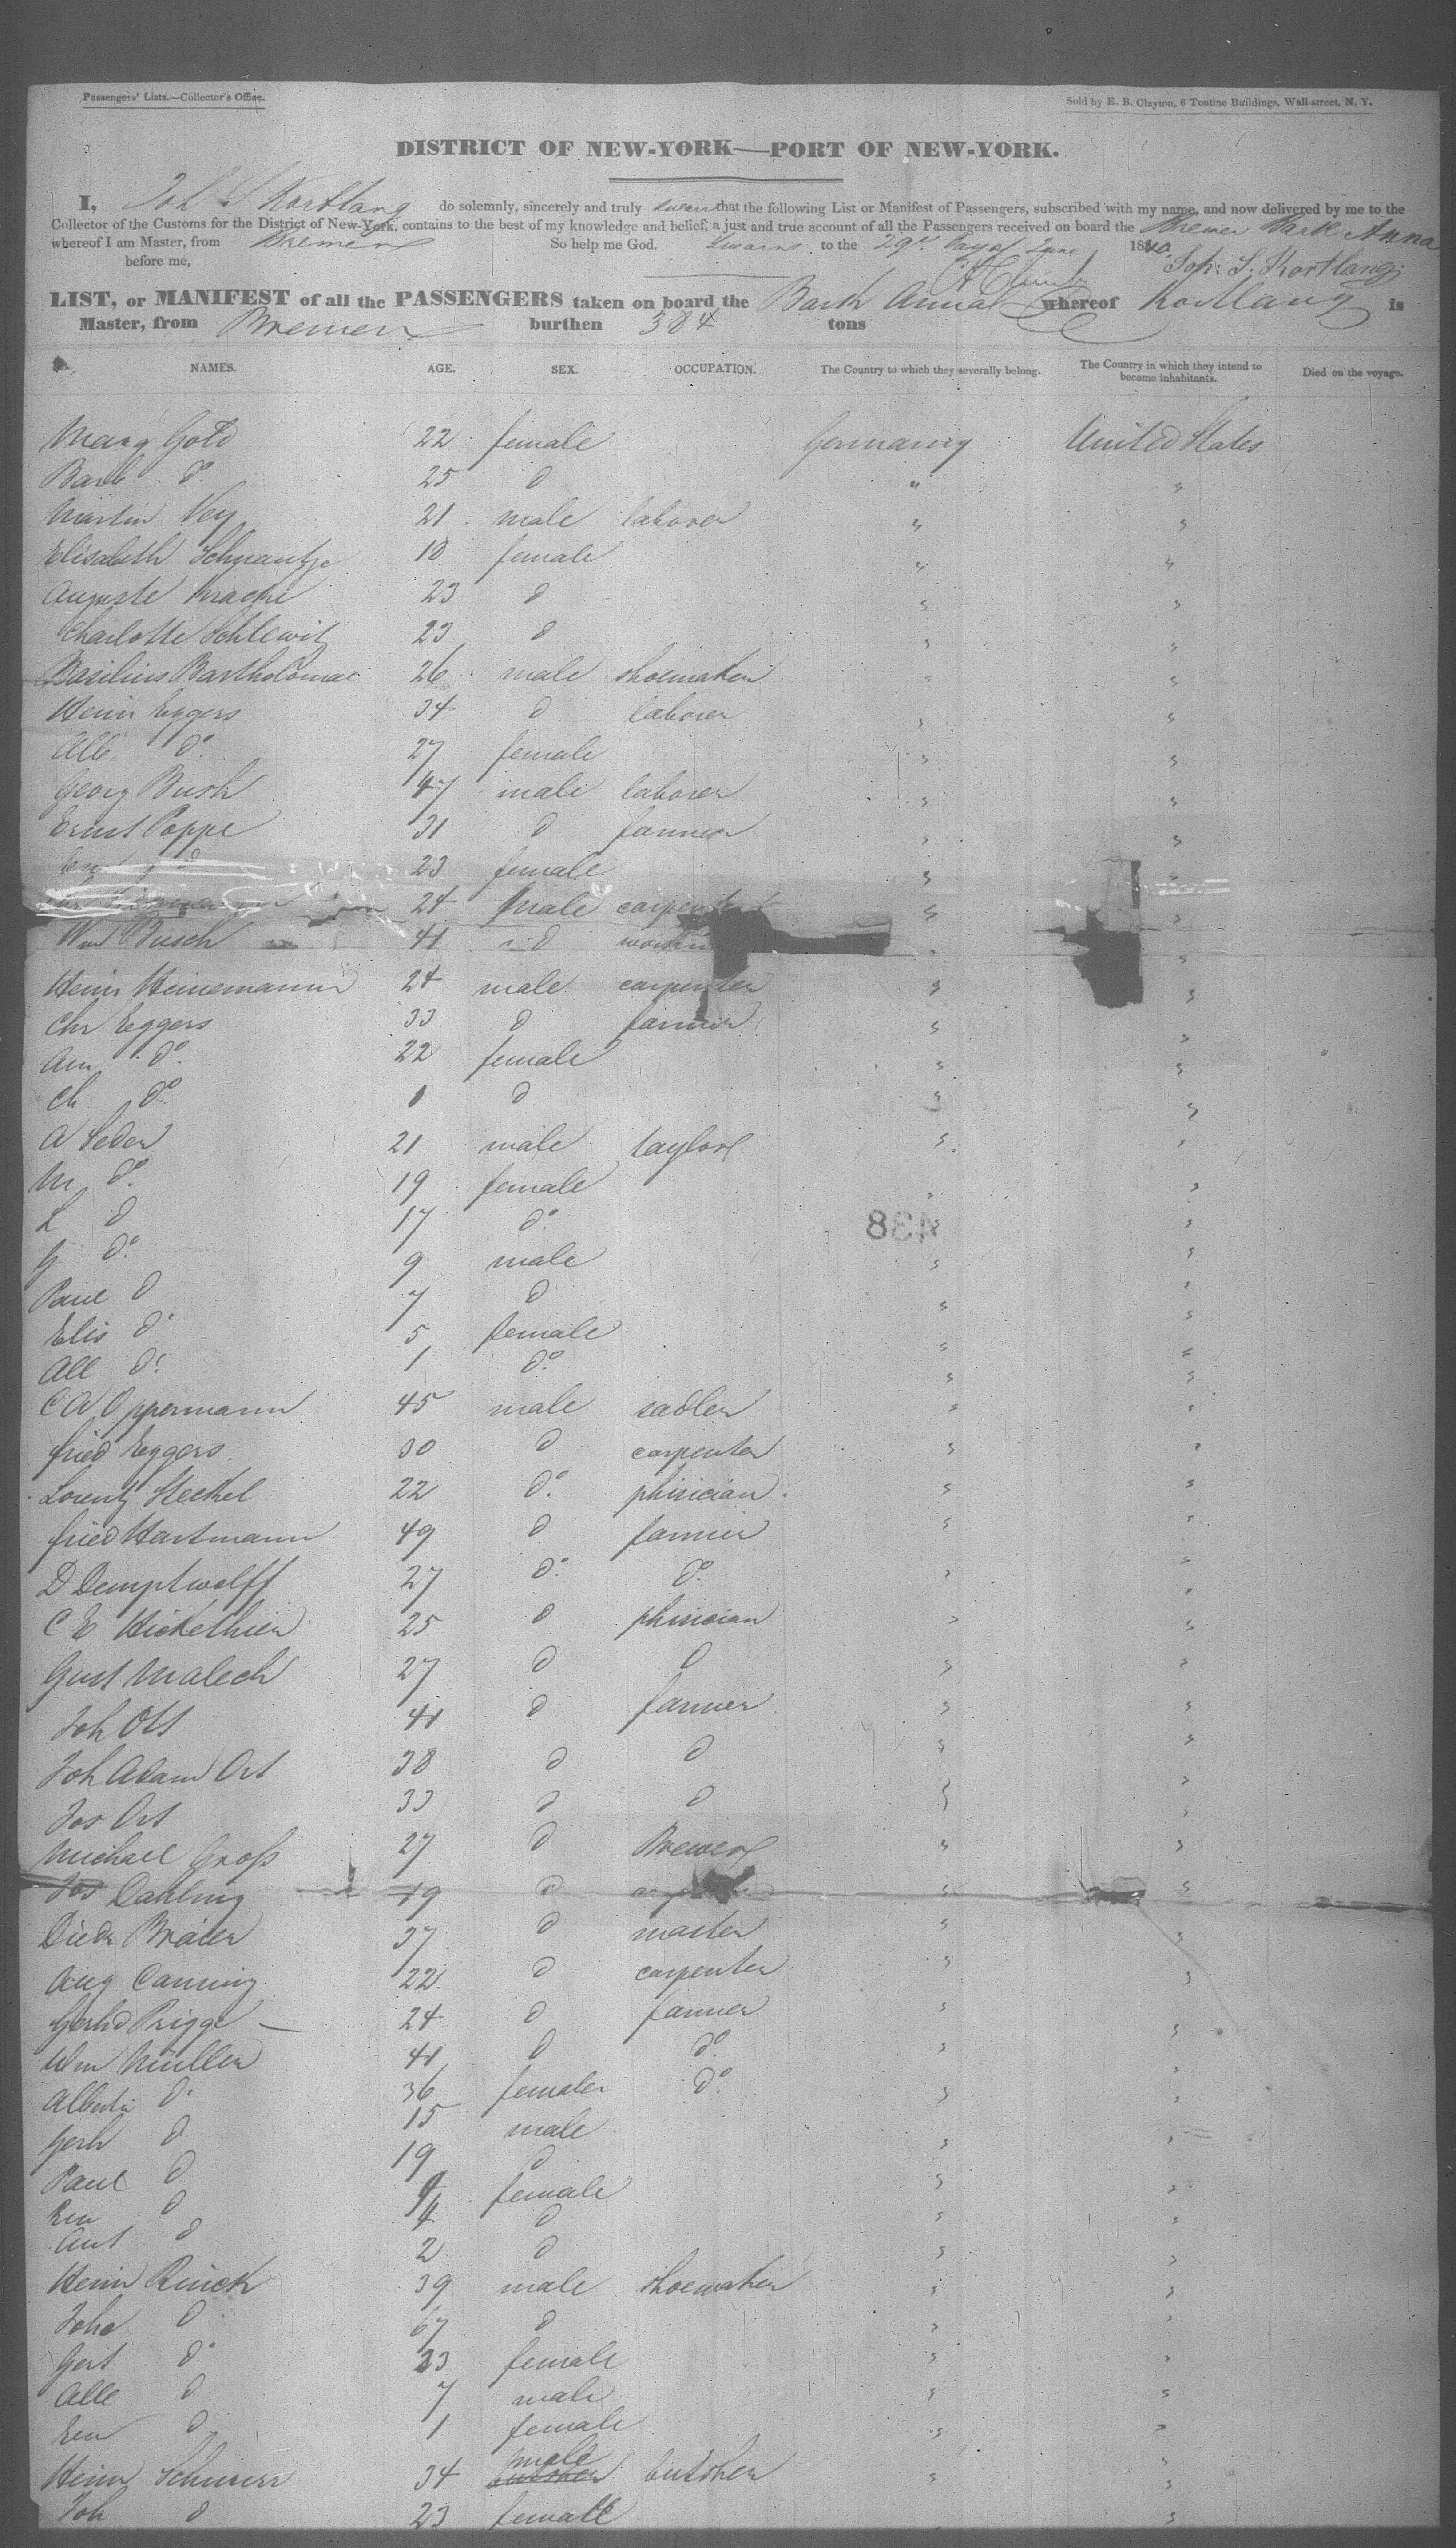 Passengers' Lists.—Collector's Office.
Sold by E. B. Clayton, 6 Tontine Buildings, Wall-street, N. Y.
DISTRICT OF NEW-YORK—PORT OF NEW-YORK.
I, Joh S Kortlang do solemnly, sincerely and truly swear that the following List or Manifest of Passengers, subscribed with my name, and now delivered by me to the
Collector of the Customs for the District of New-York, contains to the best of my knowledge and belief, a just and true account of all the Passengers received on board the Bremen Bark Anna
whereof I am Master, from Bremen So help me God. Sworn to the 29th Day of June 1840
before me, Joh: S. Kortlang
LIST, or MANIFEST of all the PASSENGERS taken on board the Bark Anna whereof Kortlang is
Master, from Bremen burthen 384 tons
NAMES. AGE. SEX. OCCUPATION. The Country to which they severally belong. The Country in which they intend to become inhabitants. Died on the voyage.
Marg Gold 22 female Germany United States
Barb do 25 d " "
Martin Vey 21 male laborer " "
Elisabeth 18 female " "
Auguste Krache 23 d " "
Charlotte Schlewit 23 d " "
Basilius Bartholomae 26 male shoemaker " "
Heinr Eggers 34 d laborer " "
Alb do 27 female " "
Georg Bush 47 male laborer " "
Ernst Poppe 31 d farmer " "
d 23 female " "
24 male carpenter " "
Wm Busch 41 d " "
Heinr Heinemann 24 male carpenter " "
Chr Eggers 33 d farmer " "
Ann do 22 female " "
Ch do 1 d " "
A Seder 21 male taylor " "
M do 19 female " "
L d 17 do " "
G do 9 male " "
438
Paul d 7 d " "
Elis do 5 female " "
All do 1 do " "
C A Oppermann 45 male sadler " "
Fried Eggers 30 d carpenter " "
Lorentz Steckel 22 do phisician " "
Fried Hartmann 49 d farmer " "
D Demptwolff 27 do do " "
C E Hickethier 25 d phisician " "
Gust Malech 27 d d " "
Joh Ott 41 d farmer " "
Joh Adam Ort 38 d d " "
Jos Ort 33 d d " "
Michael Groß 27 d Brewer " "
Jos Dahling 19 d " "
Diedr Braier 37 d master " "
Aug Canning 22 d carpenter " "
Gerhd Prigge 24 d farmer " "
Wm Müller 41 d do " "
Alberti do 36 female do " "
Gerh d 15 male " "
Paul d 19 d " "
Rea d 9 female " "
Ant d 4 d " "
2 d " "
Heinr Rinck 39 male shoemaker " "
Joha d 67 d " "
Gert do 33 female " "
Alle d 7 male " "
Rea d 1 female " "
Heinr Schnurr 34 male butcher " "
Joh d 23 female "